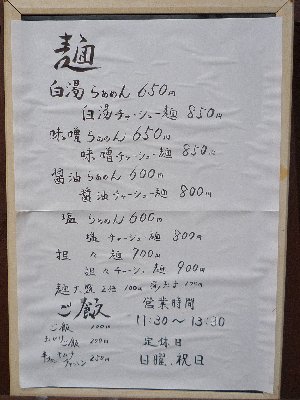 麺
白湯らぁめん 650円
白湯チャーシュー麺 850円
味噌らぁめん 650円
味噌チャーシュー麺 850円
醤油らぁめん 600円
醤油チャーシュー麺 800円
塩らぁめん 600円
塩チャーシュー麺 800円
担々麺 700円
担々チャーシュー麺 900円
麺大盛 100円 100円
ご飯
ご飯 100円
ご飯 200円
250円
営業時間
11:30〜13:30
定休日
日曜、祝日